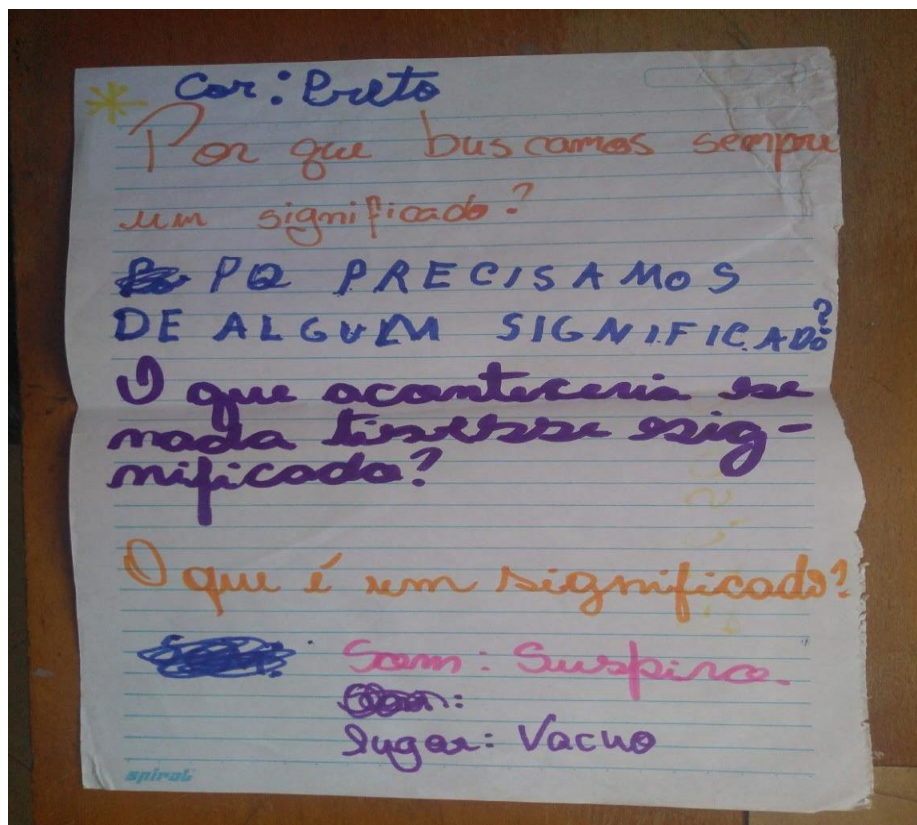 Cor: Preto
Por que buscamos sempre
um significado?
PQ PRECISAMOS
DE ALGUM SIGNIFICADO?
O que aconteceria se
nada tivesse sig-
nificado?
O que é um significado?
Som: Suspiro.
Lugar: Vacuo
spiral